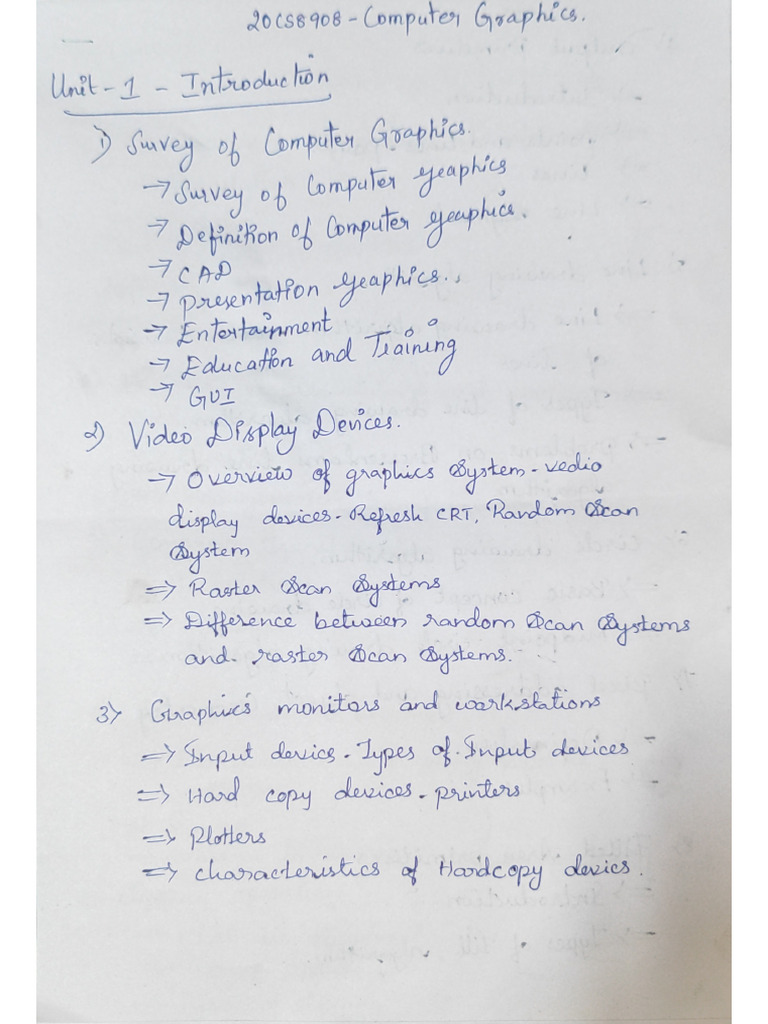 20CS8908 - Computer Graphics.
Unit - 1 - Introduction
1) Survey of Computer Graphics.
→ Survey of Computer geaphics
→ Definition of Computer geaphics.
→ CAD
→ Presentation geaphics..
→ Entertainment
→ Education and Training
→ GUI
2) Video Display Devices.
→ Overview of graphics System - vedio
display devices - Refresh CRT, Random Scan
System
⇒ Raster Scan Systems
⇒ Difference between random Scan Systems
and raster Scan Systems.
3) Graphics monitors and workstations
⇒ Input devics - Types of Input devices
⇒ Hard copy devices - printers
⇒ Plotters
⇒ characteristics of Hardcopy devics.